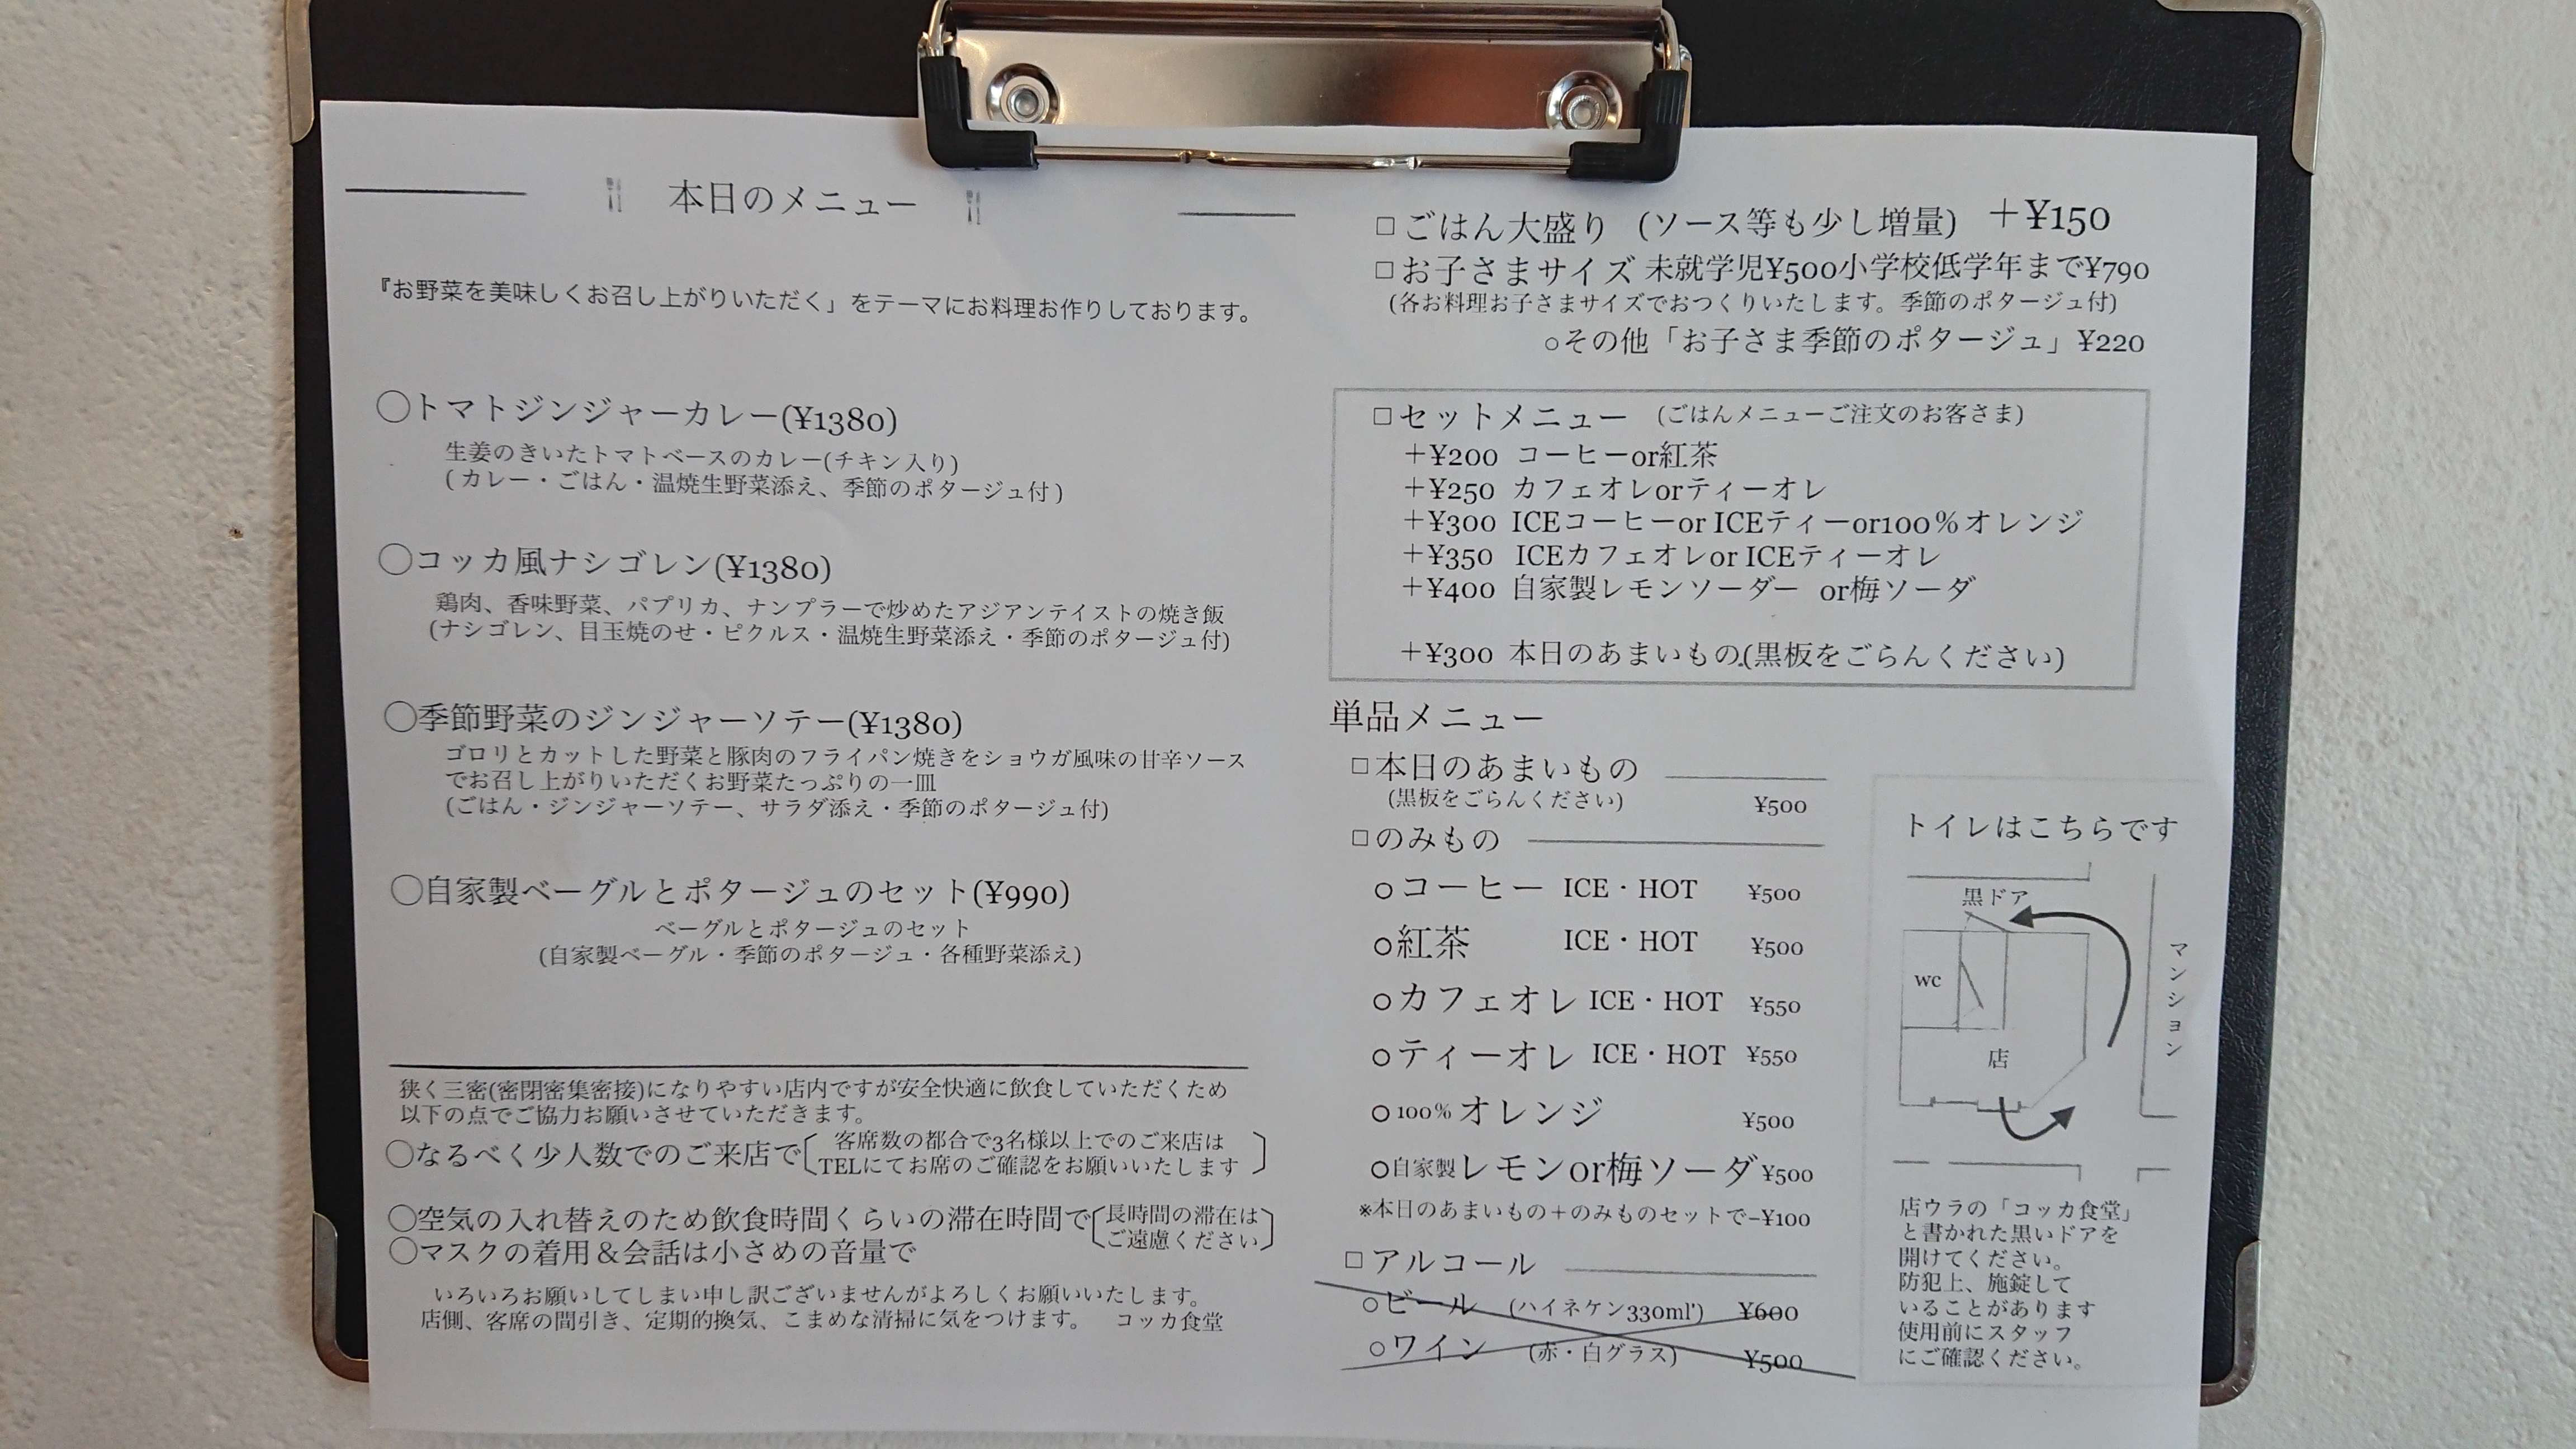 本日のメニュー
『お野菜を美味しくお召し上がりいただく」をテーマにお料理お作りしております。
〇トマトジンジャーカレー(¥1380)
生姜のきいたトマトベースのカレー(チキン入り)
(カレー・ごはん・温焼生野菜添え、季節のポタージュ付)
〇コッカ風ナシゴレン(¥1380)
鶏肉、香味野菜、パプリカ、ナンプラーで炒めたアジアンテイストの焼き飯
(ナシゴレン、目玉焼のせ・ピクルス・温焼生野菜添え・季節のポタージュ付)
〇季節野菜のジンジャーソテー(¥1380)
ゴロリとカットした野菜と豚肉のフライパン焼きをショウガ風味の甘辛ソース
でお召し上がりいただくお野菜たっぷりの一皿
(ごはん・ジンジャーソテー、サラダ添え・季節のポタージュ付)
〇自家製ベーグルとポタージュのセット(¥990)
ベーグルとポタージュのセット
(自家製ベーグル・季節のポタージュ・各種野菜添え)
狭く三密(密閉密集密接)になりやすい店内ですが安全快適に飲食していただくため
以下の点でご協力お願いさせていただきます。
〇なるべく少人数でのご来店で
客席数の都合で3名様以上でのご来店は
TELにてお席のご確認をお願いいたします
〇空気の入れ替えのため飲食時間くらいの滞在時間で
長時間の滞在は
ご遠慮ください
〇マスクの着用＆会話は小さめの音量で
いろいろお願いしてしまい申し訳ございませんがよろしくお願いいたします。
店側、客席の間引き、定期的換気、こまめな清掃に気をつけます。 コッカ食堂
□ごはん大盛り (ソース等も少し増量) ＋¥150
□お子さまサイズ 未就学児¥500小学校低学年まで¥790
(各お料理お子さまサイズでおつくりいたします。季節のポタージュ付)
○その他「お子さま季節のポタージュ」¥220
□セットメニュー (ごはんメニューご注文のお客さま)
＋¥200 コーヒーor紅茶
＋¥250 カフェオレorティーオレ
＋¥300 ICEコーヒーor ICEティーor100％オレンジ
＋¥350 ICEカフェオレor ICEティーオレ
＋¥400 自家製レモンソーダー or梅ソーダ
＋¥300 本日のあまいもの(黒板をごらんください)
単品メニュー
□本日のあまいもの
(黒板をごらんください) ¥500
□のみもの
○コーヒー ICE・HOT ¥500
○紅茶 ICE・HOT ¥500
○カフェオレ ICE・HOT ¥550
○ティーオレ ICE・HOT ¥550
○100%オレンジ ¥500
○自家製レモンor梅ソーダ¥500
※本日のあまいもの＋のみものセットで−¥100
□アルコール
○ビール (ハイネケン330ml') ¥600
○ワイン (赤・白グラス) ¥500
トイレはこちらです
黒ドア
マンション
wc
店
店ウラの「コッカ食堂」
と書かれた黒いドアを
開けてください。
防犯上、施錠して
いることがあります
使用前にスタッフ
にご確認ください。